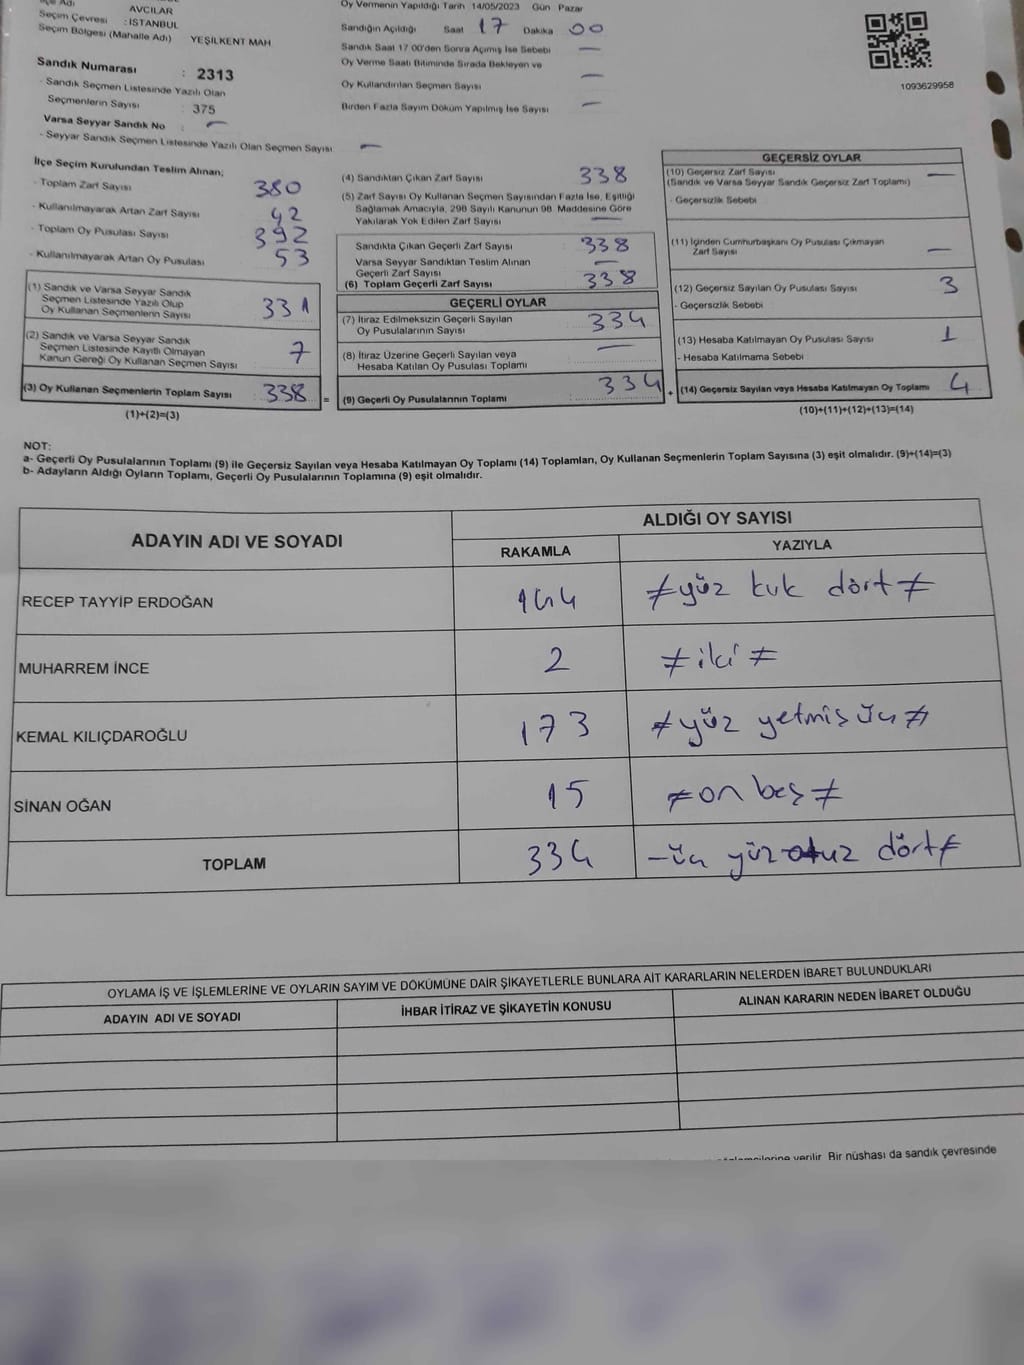 İlçe Adı AVCILAR
Seçim Çevresi : İSTANBUL
Seçim Bölgesi (Mahalle Adı) YEŞİLKENT MAH
Sandık Numarası : 2313
- Sandık Seçmen Listesinde Yazılı Olan
Seçmenlerin Sayısı : 375
Varsa Seyyar Sandık No : —
- Seyyar Sandık Seçmen Listesinde Yazılı Olan Seçmen Sayısı —
Oy Vermenin Yapıldığı Tarih 14/05/2023 Gün Pazar
Sandığın Açıldığı Saat 17 Dakika 00
Sandık Saat 17 00'den Sonra Açımış İse Sebebi —
Oy Verme Saati Bitiminde Sırada Bekleyen ve
Oy Kullandırılan Seçmen Sayısı —
Birden Fazla Sayım Döküm Yapılmış İse Sayısı —
1093629958
İlçe Seçim Kurulundan Teslim Alınan;
- Toplam Zarf Sayısı 380
- Kullanılmayarak Artan Zarf Sayısı 42
- Toplam Oy Pusulası Sayısı 392
- Kullanılmayarak Artan Oy Pusulası 53
(1) Sandık ve Varsa Seyyar Sandık
Seçmen Listesinde Yazılı Olup
Oy Kullanan Seçmenlerin Sayısı 331
(2) Sandık ve Varsa Seyyar Sandık
Seçmen Listesinde Kayıtlı Olmayan
Kanun Gereği Oy Kullanan Seçmen Sayısı 7
(3) Oy Kullanan Seçmenlerin Toplam Sayısı 338 =
(1)+(2)=(3)
(4) Sandıktan Çıkan Zarf Sayısı 338
(5) Zarf Sayısı Oy Kullanan Seçmen Sayısından Fazla İse, Eşitliği
Sağlamak Amacıyla, 298 Sayılı Kanunun 98. Maddesine Göre
Yakılarak Yok Edilen Zarf Sayısı —
Sandıkta Çıkan Geçerli Zarf Sayısı 338
Varsa Seyyar Sandıktan Teslim Alınan
Geçerli Zarf Sayısı —
(6) Toplam Geçerli Zarf Sayısı 338
GEÇERLİ OYLAR
(7) İtiraz Edilmeksizin Geçerli Sayılan
Oy Pusulalarının Sayısı 334
(8) İtiraz Üzerine Geçerli Sayılan veya
Hesaba Katılan Oy Pusulası Toplamı —
(9) Geçerli Oy Pusulalarının Toplamı 334 +
GEÇERSİZ OYLAR
(10) Geçersiz Zarf Sayısı —
(Sandık ve Varsa Seyyar Sandık Geçersiz Zarf Toplamı)
- Geçersizlik Sebebi
(11) İçinden Cumhurbaşkanı Oy Pusulası Çıkmayan
Zarf Sayısı —
(12) Geçersiz Sayılan Oy Pusulası Sayısı 3
- Geçersizlik Sebebi
(13) Hesaba Katılmayan Oy Pusulası Sayısı 1
- Hesaba Katılmama Sebebi
(14) Geçersiz Sayılan veya Hesaba Katılmayan Oy Toplamı 4
(10)+(11)+(12)+(13)=(14)
NOT:
a- Geçerli Oy Pusulalarının Toplamı (9) ile Geçersiz Sayılan veya Hesaba Katılmayan Oy Toplamı (14) Toplamları, Oy Kullanan Seçmenlerin Toplam Sayısına (3) eşit olmalıdır. (9)+(14)=(3)
b- Adayların Aldığı Oyların Toplamı, Geçerli Oy Pusulalarının Toplamına (9) eşit olmalıdır.
ADAYIN ADI VE SOYADI ALDIĞI OY SAYISI
RAKAMLA YAZIYLA
RECEP TAYYİP ERDOĞAN 144 ≠yüz kırk dört≠
MUHARREM İNCE 2 ≠iki≠
KEMAL KILIÇDAROĞLU 173 ≠yüz yetmiş üç≠
SİNAN OĞAN 15 ≠on beş≠
TOPLAM 334 -üç yüz otuz dört≠
OYLAMA İŞ VE İŞLEMLERİNE VE OYLARIN SAYIM VE DÖKÜMÜNE DAİR ŞİKAYETLERLE BUNLARA AİT KARARLARIN NELERDEN İBARET BULUNDUKLARI
ADAYIN ADI VE SOYADI İHBAR İTİRAZ VE ŞİKAYETİN KONUSU ALINAN KARARIN NEDEN İBARET OLDUĞU
verilir. Bir nüshası da sandık çevresinde